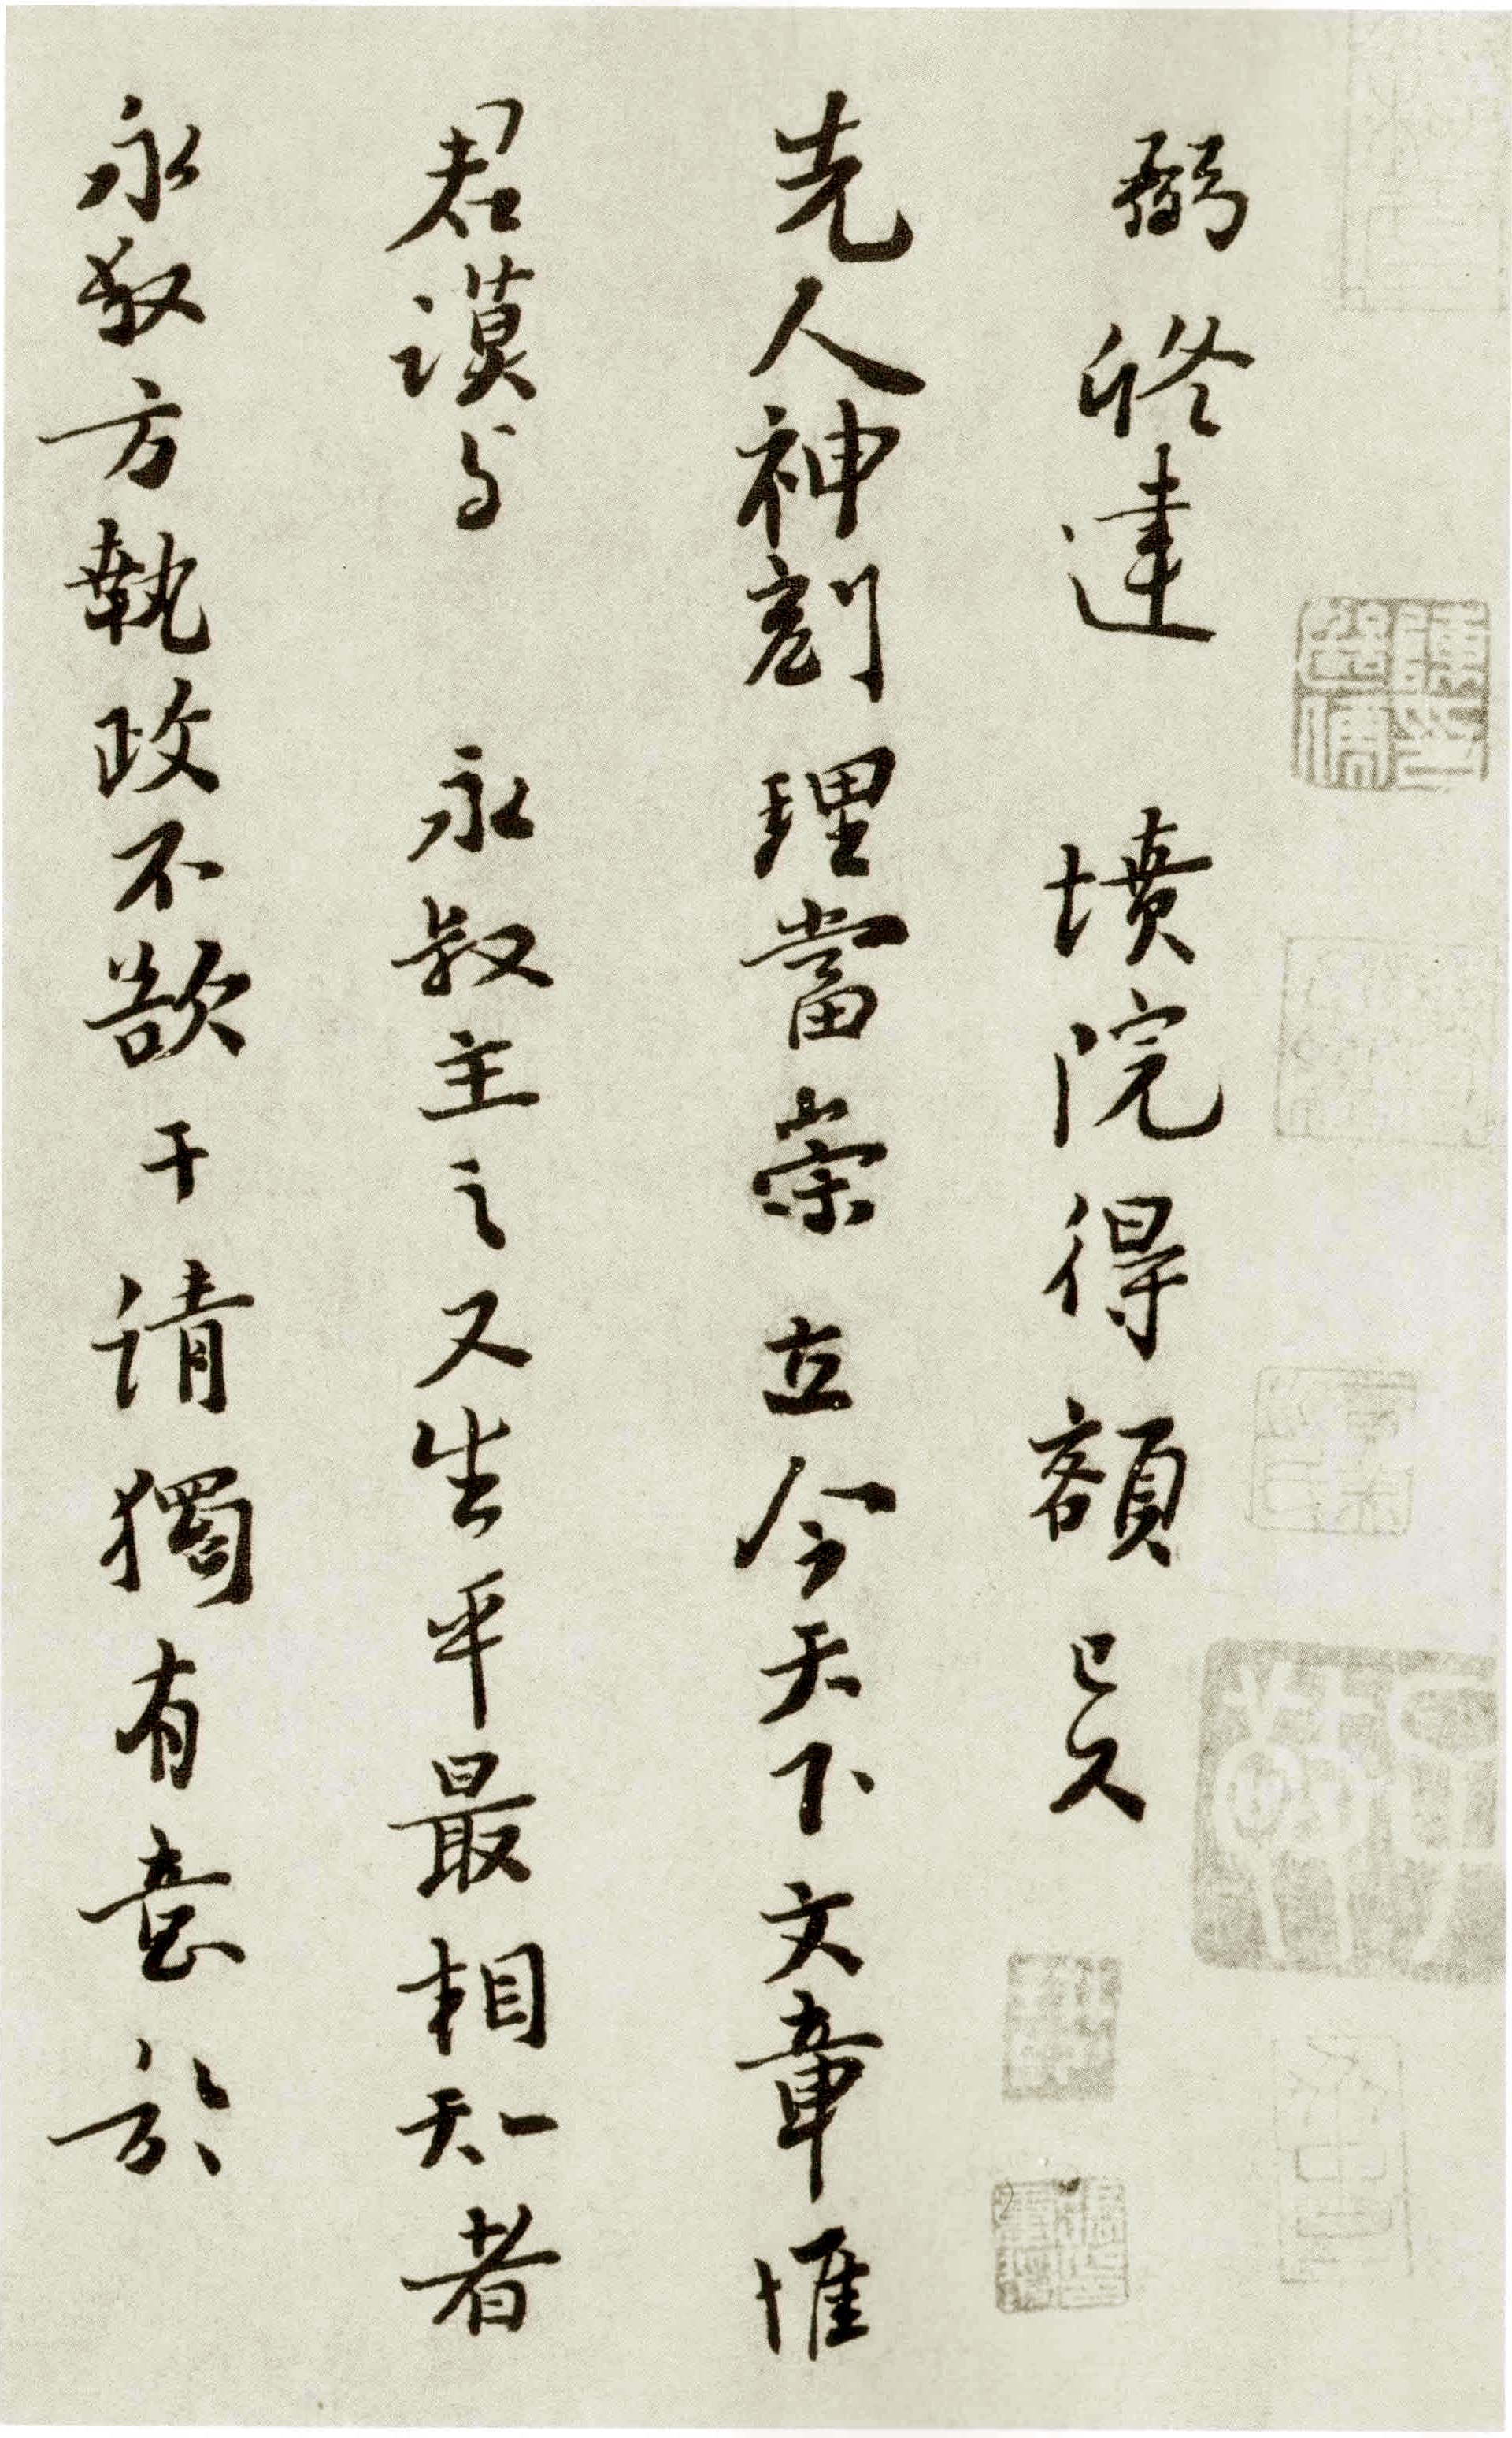 弼脩建 墳院得額已久
先人神刻理當崇立今天下文章惟
君謨與 永叔主之又生平最相知者
永叔方執政不欲干請獨有意於